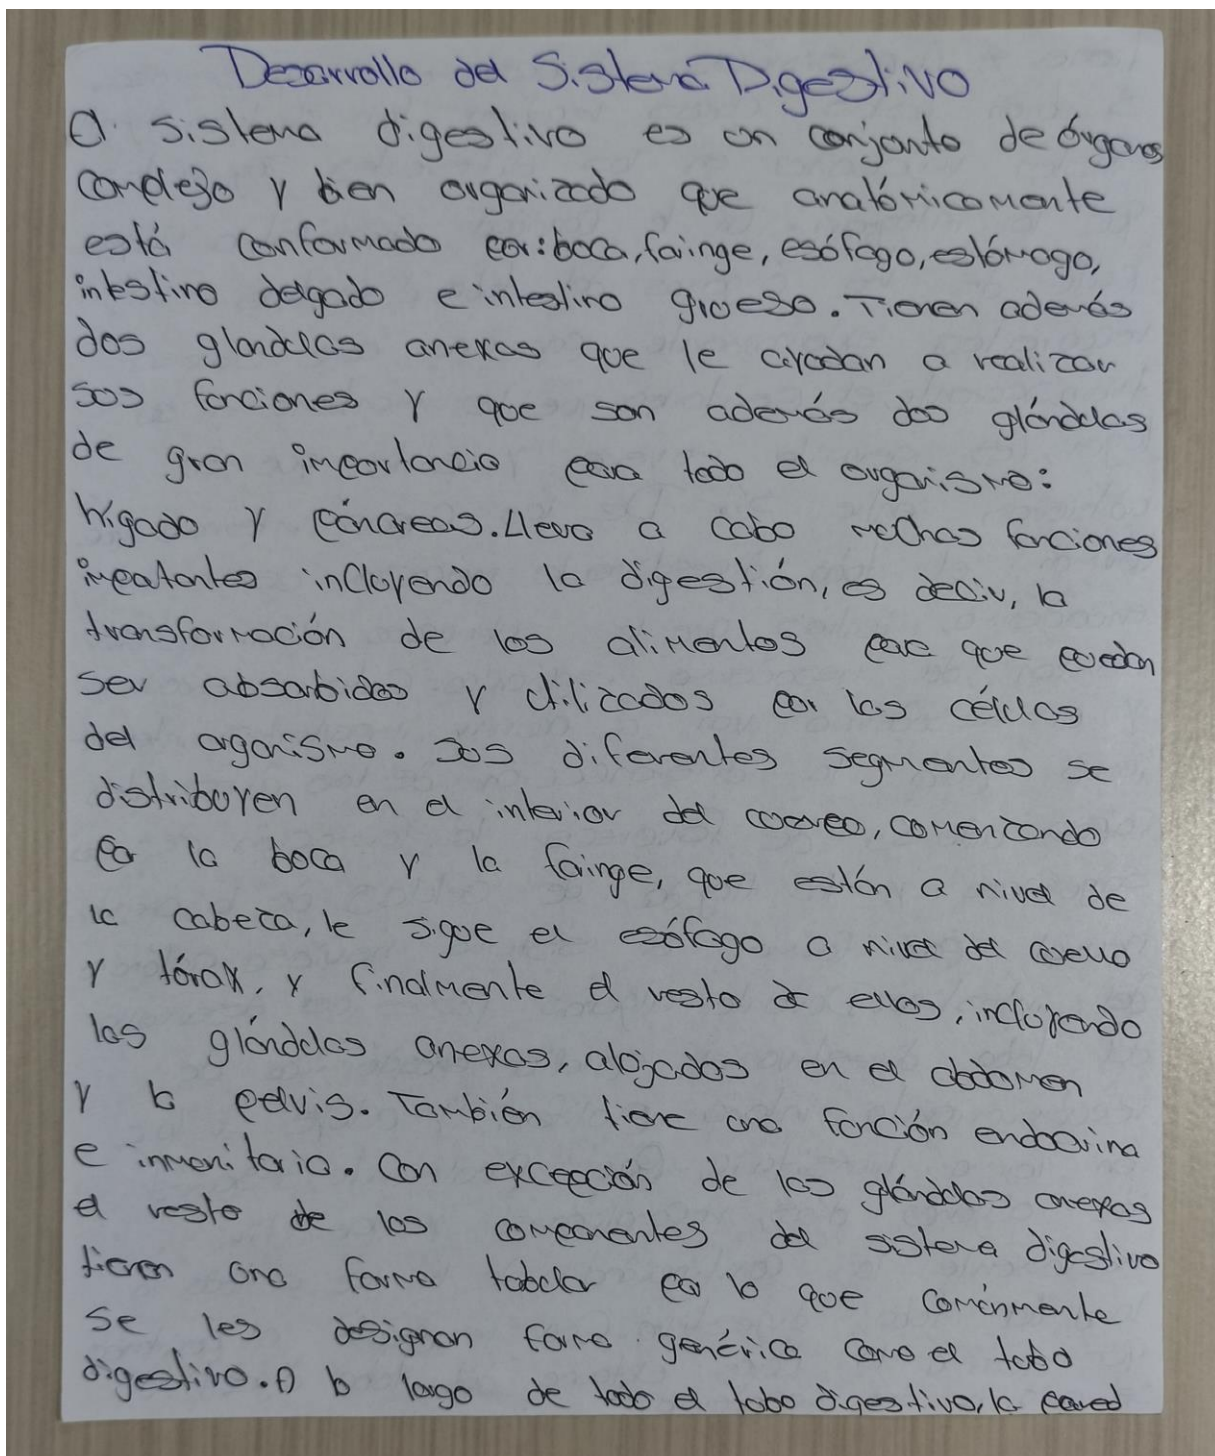 Desarrollo del Sistema Digestivo
El sistema digestivo es un conjunto de órganos
complejo y bien organizado que anatómicamente
está conformado por: boca, fainge, esófago, estómago,
intestino delgado e intestino grueso. Tienen además
dos glandulas anexas que le ayudan a realizar
sus funciones y que son además dos glándulas
de gran importancia para todo el organismo:
hígado y páncreas. Lleva a cabo muchas funciones
impotantes incluyendo la digestión, es decir, la
transformación de los alimentos para que puedan
ser absorbidos y utilizados por las células
del organismo. Sus diferentes segmentos se
distribuyen en el interior del cuerpo, comenzando
por la boca y la fainge, que están a nivel de
la cabeza, le sigue el esófago a nivel del cuello
y tórax, y finalmente el resto de ellos, incluyendo
las glándulas anexas, alojados en el abdomen
y la pelvis. También tiene una función endocrina
e inmunitaria. Con excepción de las glándulas anexas
el resto de los componentes del sistema digestivo
tienen una forma tubular por lo que comúnmente
se les designan forma genérica como el tubo
digestivo. A lo largo de todo el tubo digestivo, la pared